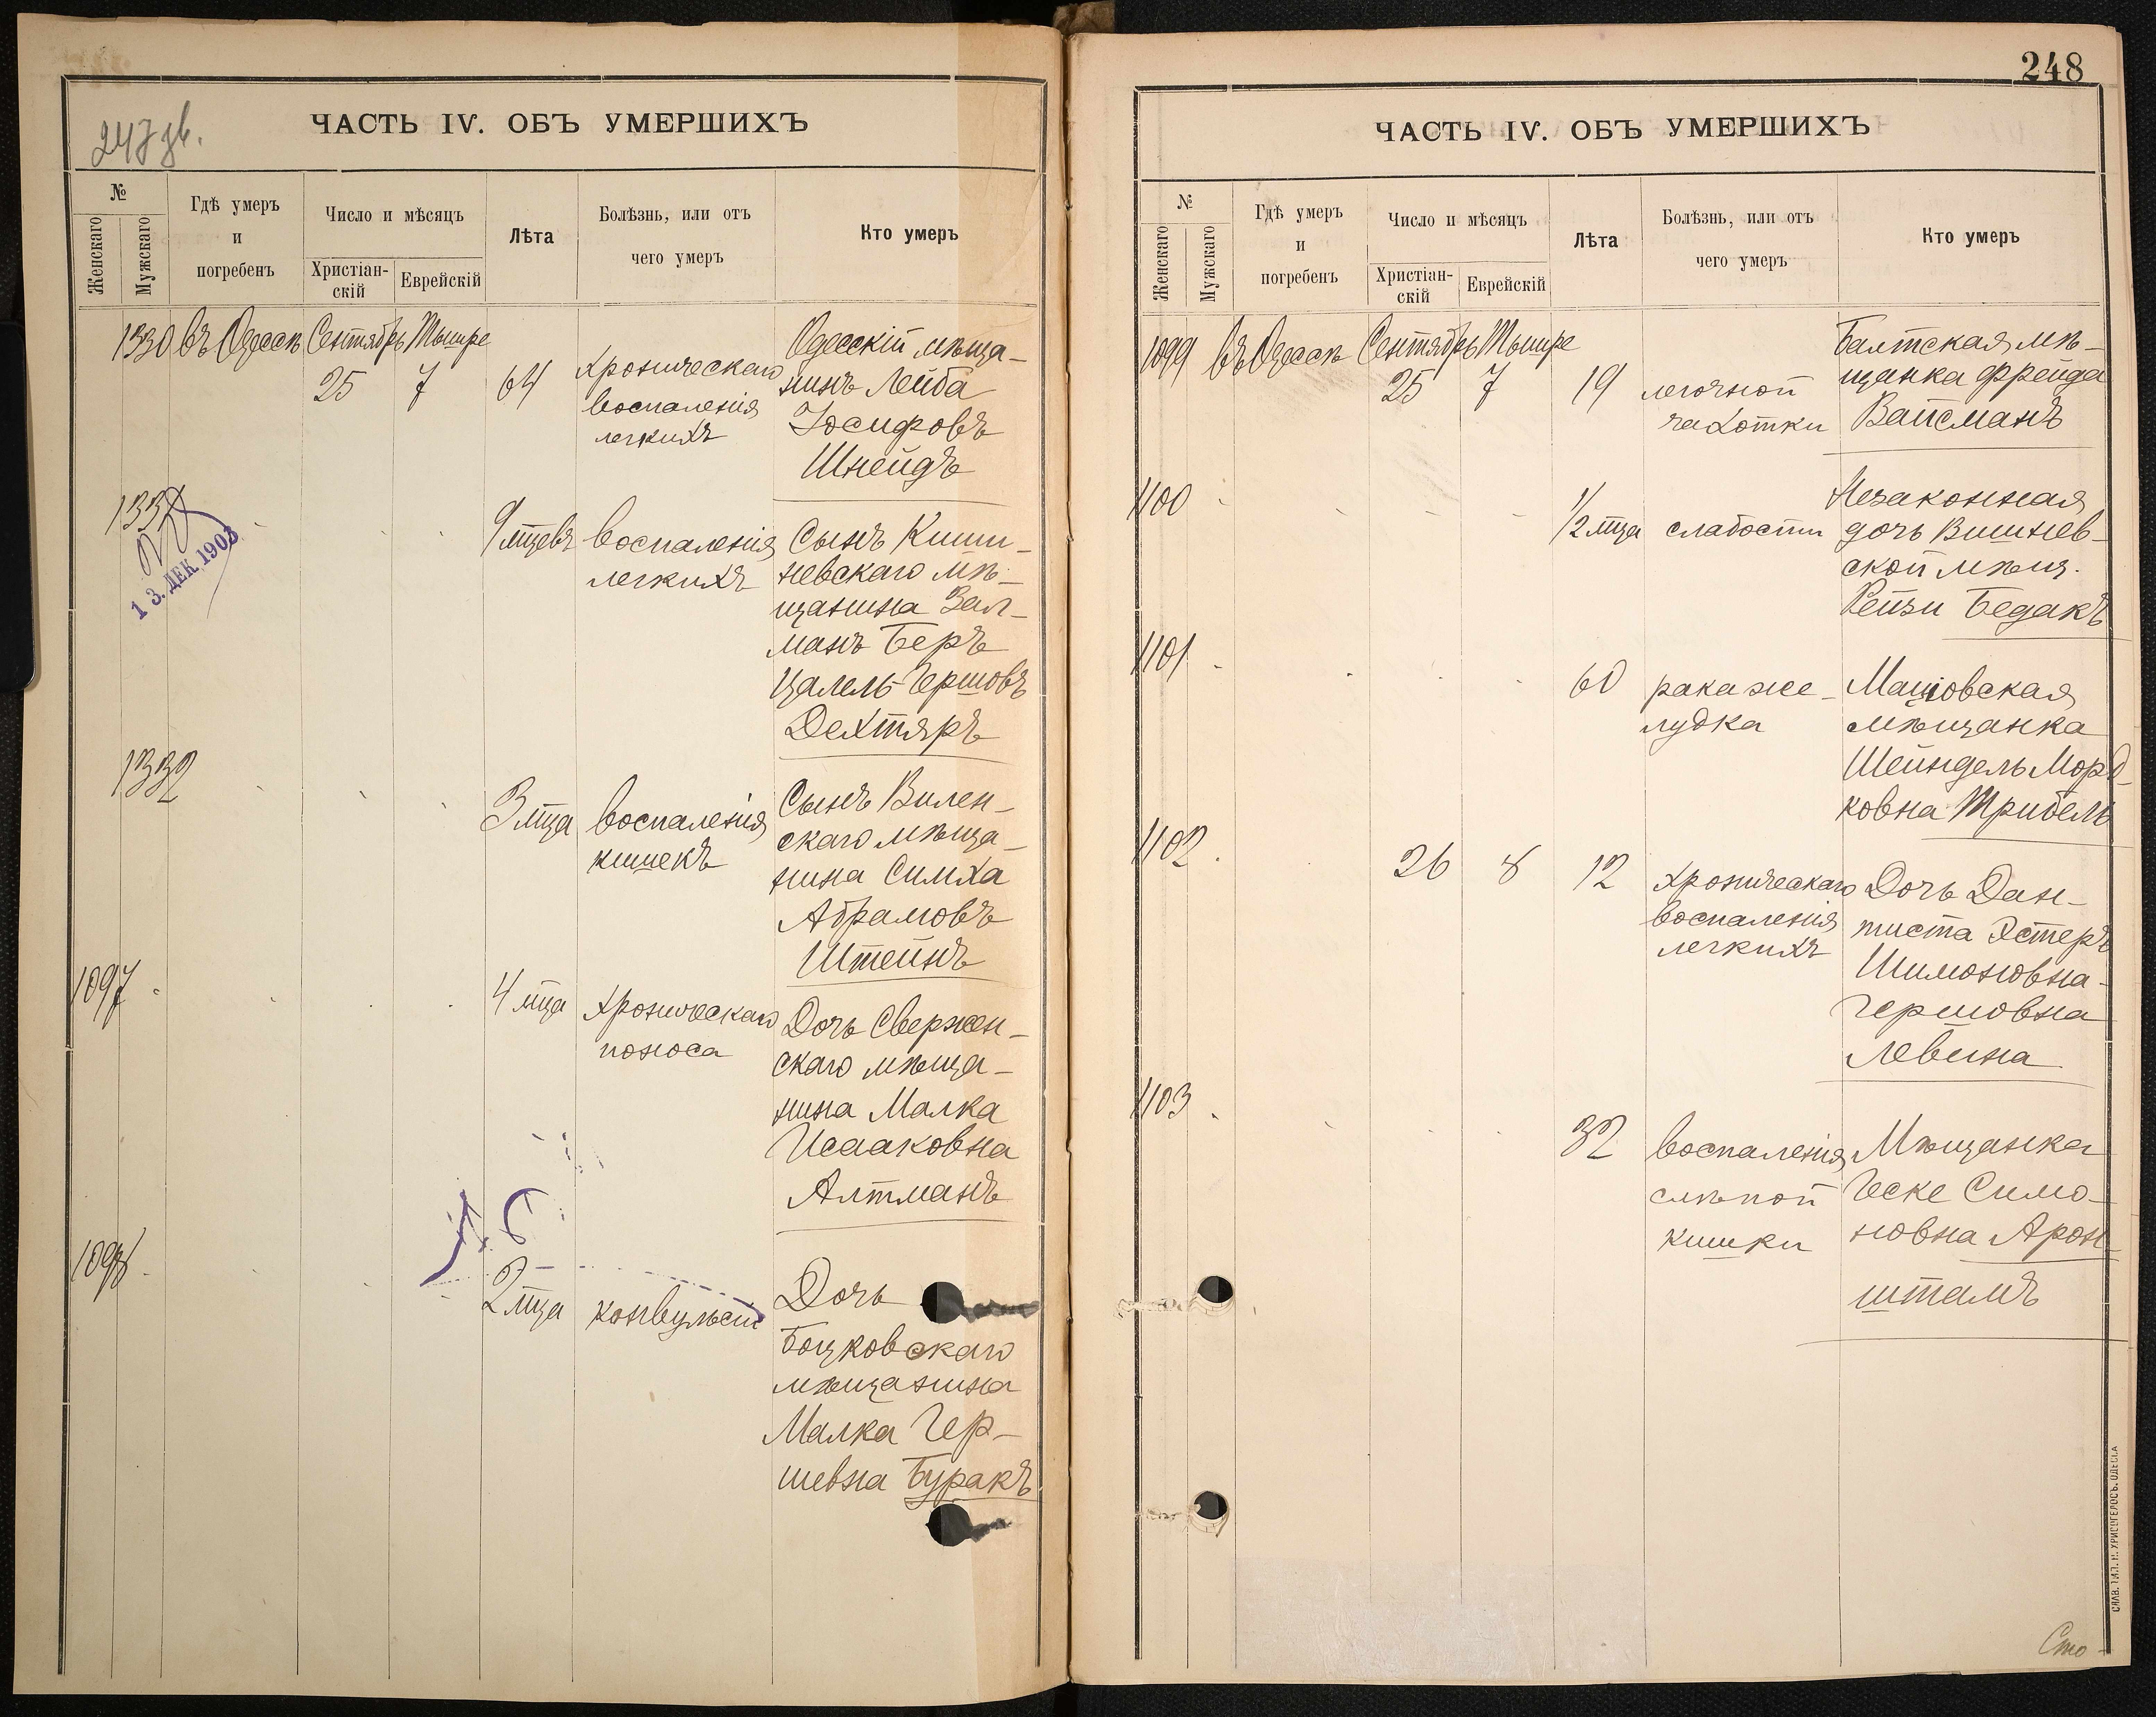 247 зв.
ЧАСТЬ IV. ОБЪ УМЕРШИХЪ
№
Женскаго
Мужскаго
Гдѣ умеръ
и
погребенъ
Число и мѣсяцъ
Христіан-
скій
Еврейскій
Лѣта
Болѣзнь, или отъ
чего умеръ
Кто умеръ
1330 въ Одессѣ Сентябрь Тышре
25 7 64
хроническаго
воспаленія
легкихъ
Одесскій мѣща-
нинъ Лейба
Іосифовъ
Шнейдъ
1331
13. ДЕК 1903
9 мцевъ
воспаленія
легкихъ
Сынъ Киши-
невскаго мѣ-
щанина Зал-
манъ Беръ
Цалель Гершовъ
Дехтяръ
1332
3 мца
воспаленія
кишекъ
Сынъ Вилен-
скаго мѣща-
нина Симха
Абрамовъ
Штейнъ
1097
4 мца
хроническаго
поноса
Дочь Свержен-
скаго мѣща-
нина Малка
Исааковна
Алтманъ
1098
2 мца
конвульсій
Дочь
Боцковскаго
мѣщанина
Малка Гер-
шевна Буракъ
248
ЧАСТЬ IV. ОБЪ УМЕРШИХЪ
№
Женскаго
Мужскаго
Гдѣ умеръ
и
погребенъ
Число и мѣсяцъ
Христіан-
скій
Еврейскій
Лѣта
Болѣзнь, или отъ
чего умеръ
Кто умеръ
1099 въ Одессѣ Сентябрь Тышре
25 7 19
легочной
чахотки
Балтская мѣ-
щанка Фрейда
Вайсманъ
1100
1/2 мца
слабости
Незаконная
дочь Вишнев-
ской мѣщ.
Рейзи Бедакъ
1101
60
рака же-
лудка
Маціовская
мѣщанка
Шейндель Морд-
ковна Трибель
1102
26 8 12
хроническаго
воспаленія
легкихъ
Дочь Дан-
тиста Эстеръ
Шимоновна-
Гершовна
Левина
1103
32
воспаленія
слѣпой
кишки
Мѣщанка
Геске Симо-
новна Арон-
штамъ
Сто-